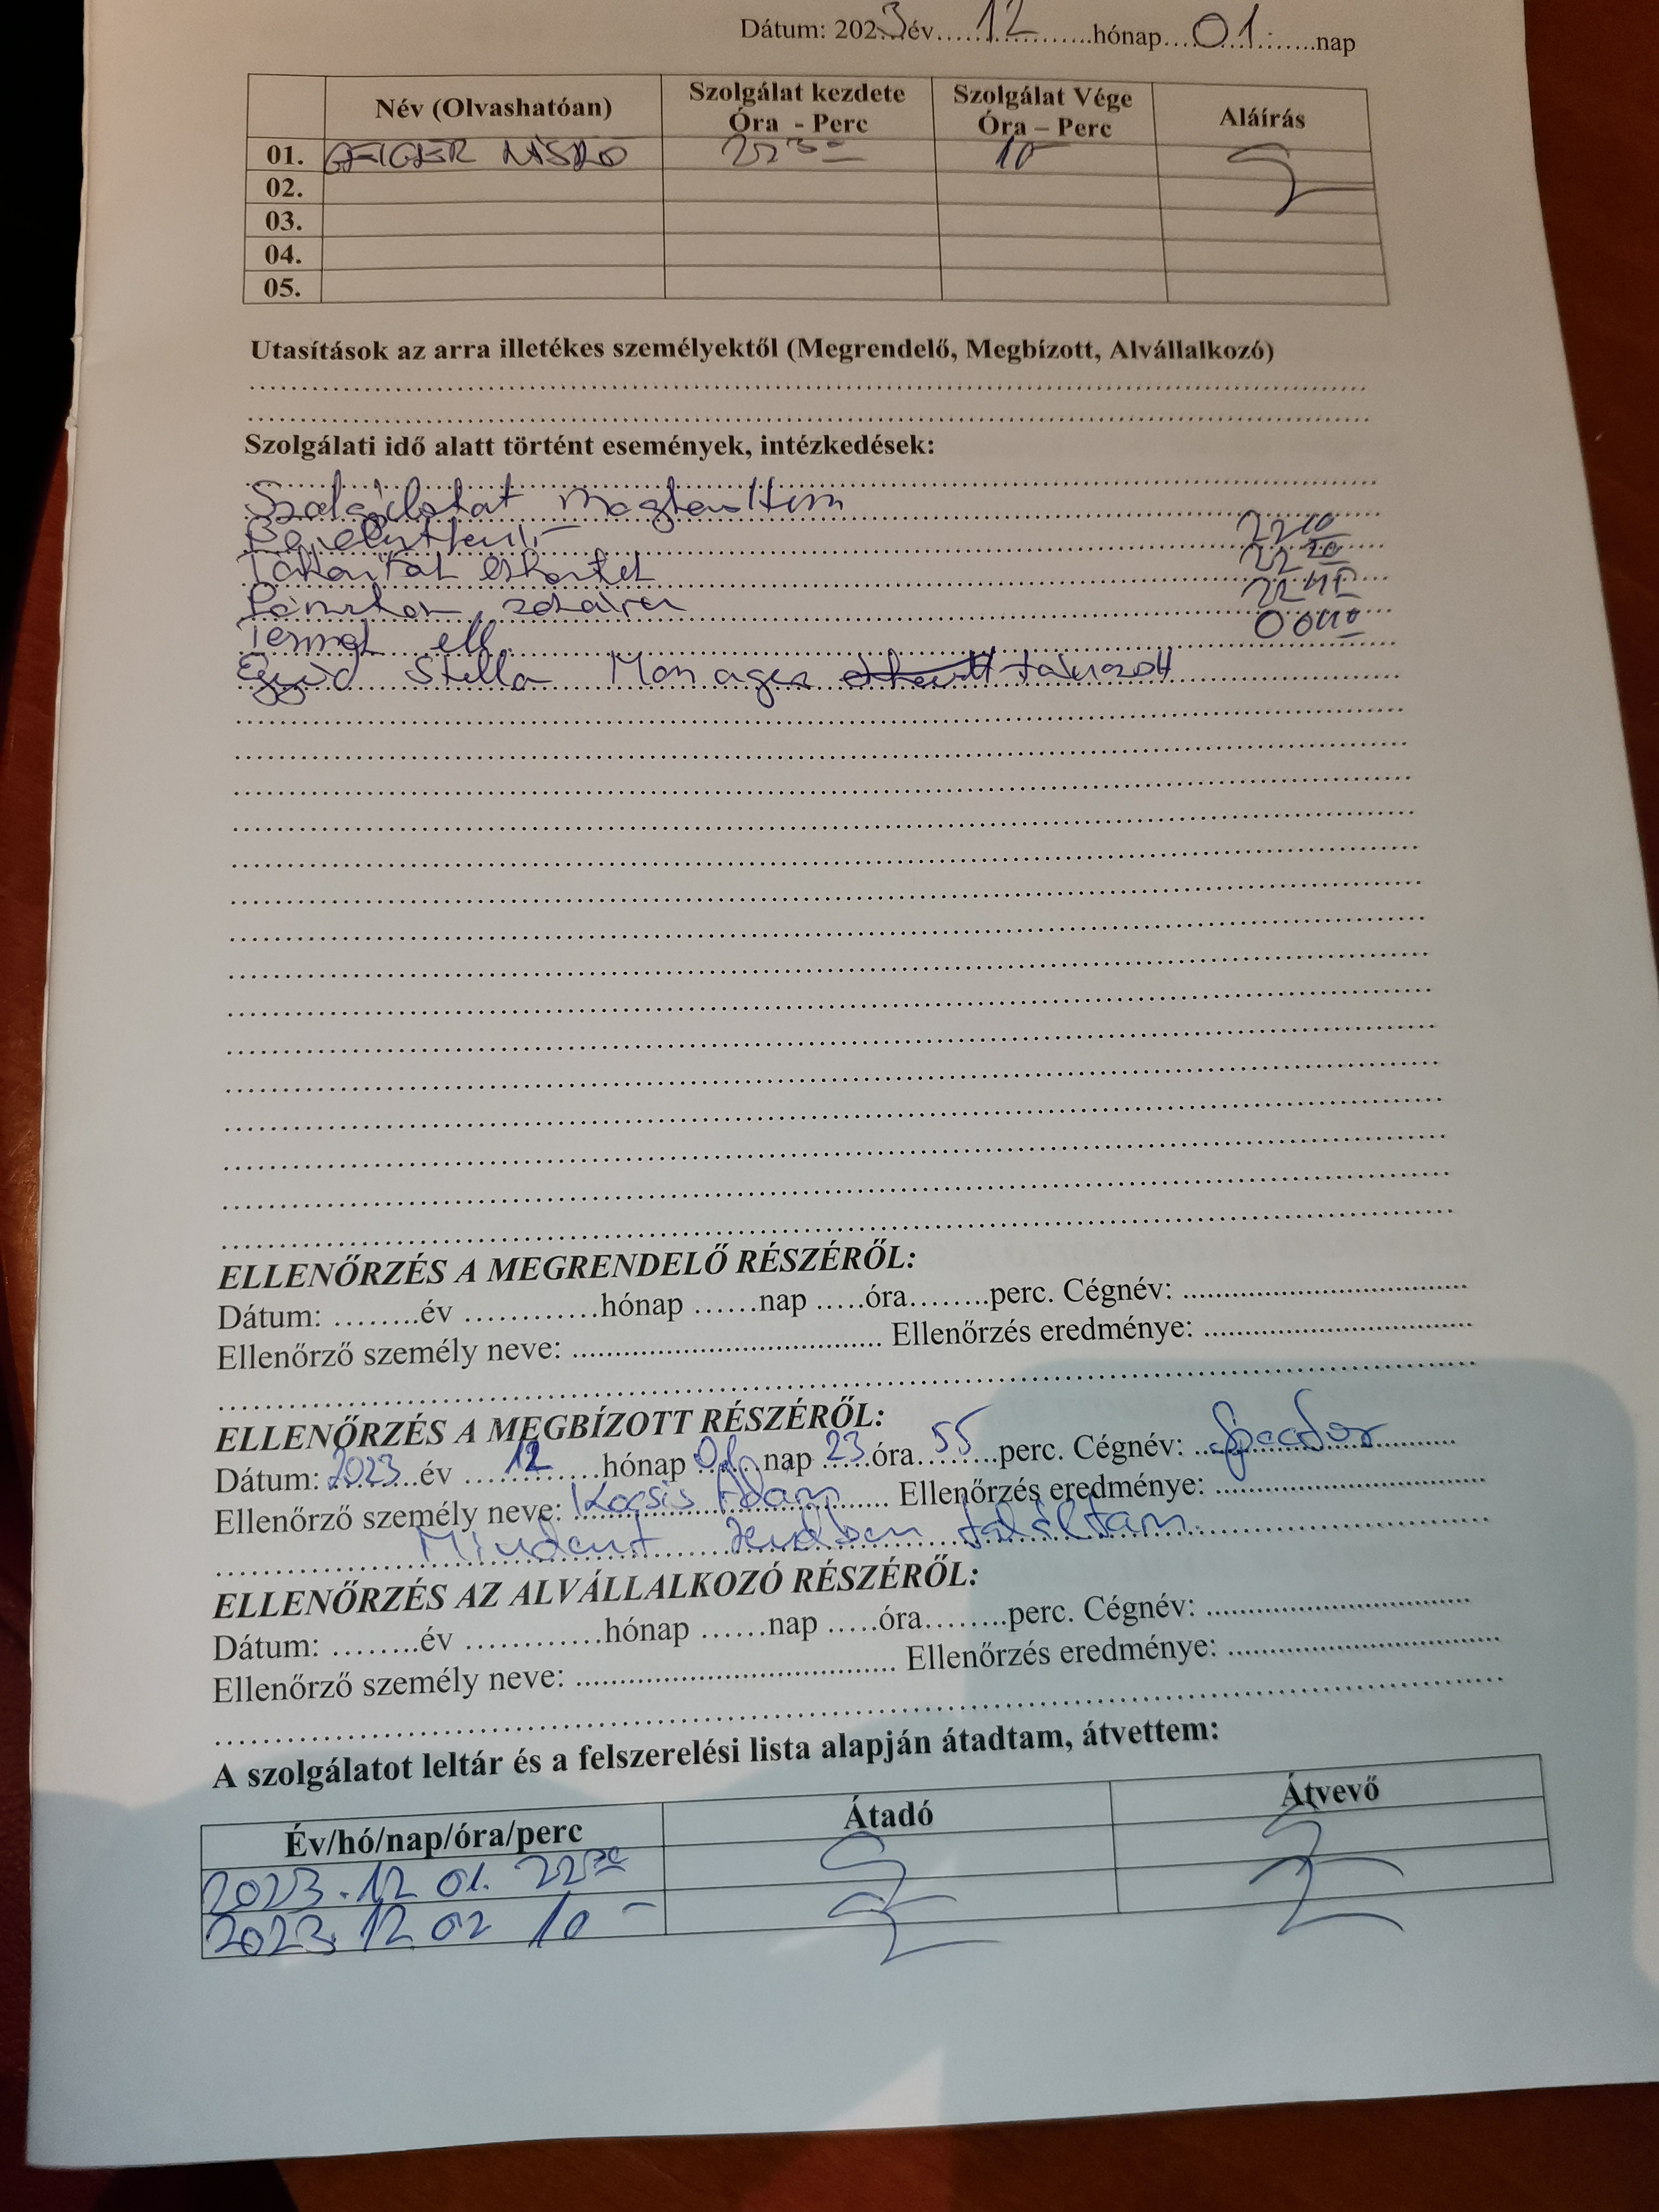 Dátum: 2023 év 12 hónap 01 nap
Név (Olvashatóan) Szolgálat kezdete Óra - Perc Szolgálat Vége Óra – Perc Aláírás
01. GEIGER 22 30 10
02.
03.
04.
05.
Utasítások az arra illetékes személyektől (Megrendelő, Megbízott, Alvállalkozó)
Szolgálati idő alatt történt események, intézkedések:
Szolgálatot megkezdtem
22 10
Takarítók érkeztek 22 20
zárva 22 45
Termek ell. 00 40
Egyed Stella Manager távozott
ELLENŐRZÉS A MEGRENDELŐ RÉSZÉRŐL:
Dátum: ........év ............hónap ......nap .....óra........perc. Cégnév: ..............................
Ellenőrző személy neve: .................................... Ellenőrzés eredménye: ..............................
ELLENŐRZÉS A MEGBÍZOTT RÉSZÉRŐL:
Dátum: 2023 év 12 hónap 01 nap 23 óra 55 perc. Cégnév:
Ellenőrző személy neve: Kocsis Ádám Ellenőrzés eredménye:
Mindent rendben találtam.
ELLENŐRZÉS AZ ALVÁLLALKOZÓ RÉSZÉRŐL:
Dátum: ........év ............hónap ......nap .....óra........perc. Cégnév: ..............................
Ellenőrző személy neve: .................................... Ellenőrzés eredménye: ..............................
A szolgálatot leltár és a felszerelési lista alapján átadtam, átvettem:
Év/hó/nap/óra/perc Átadó Átvevő
2023.12 01. 22 30
2023. 12 02 10 –